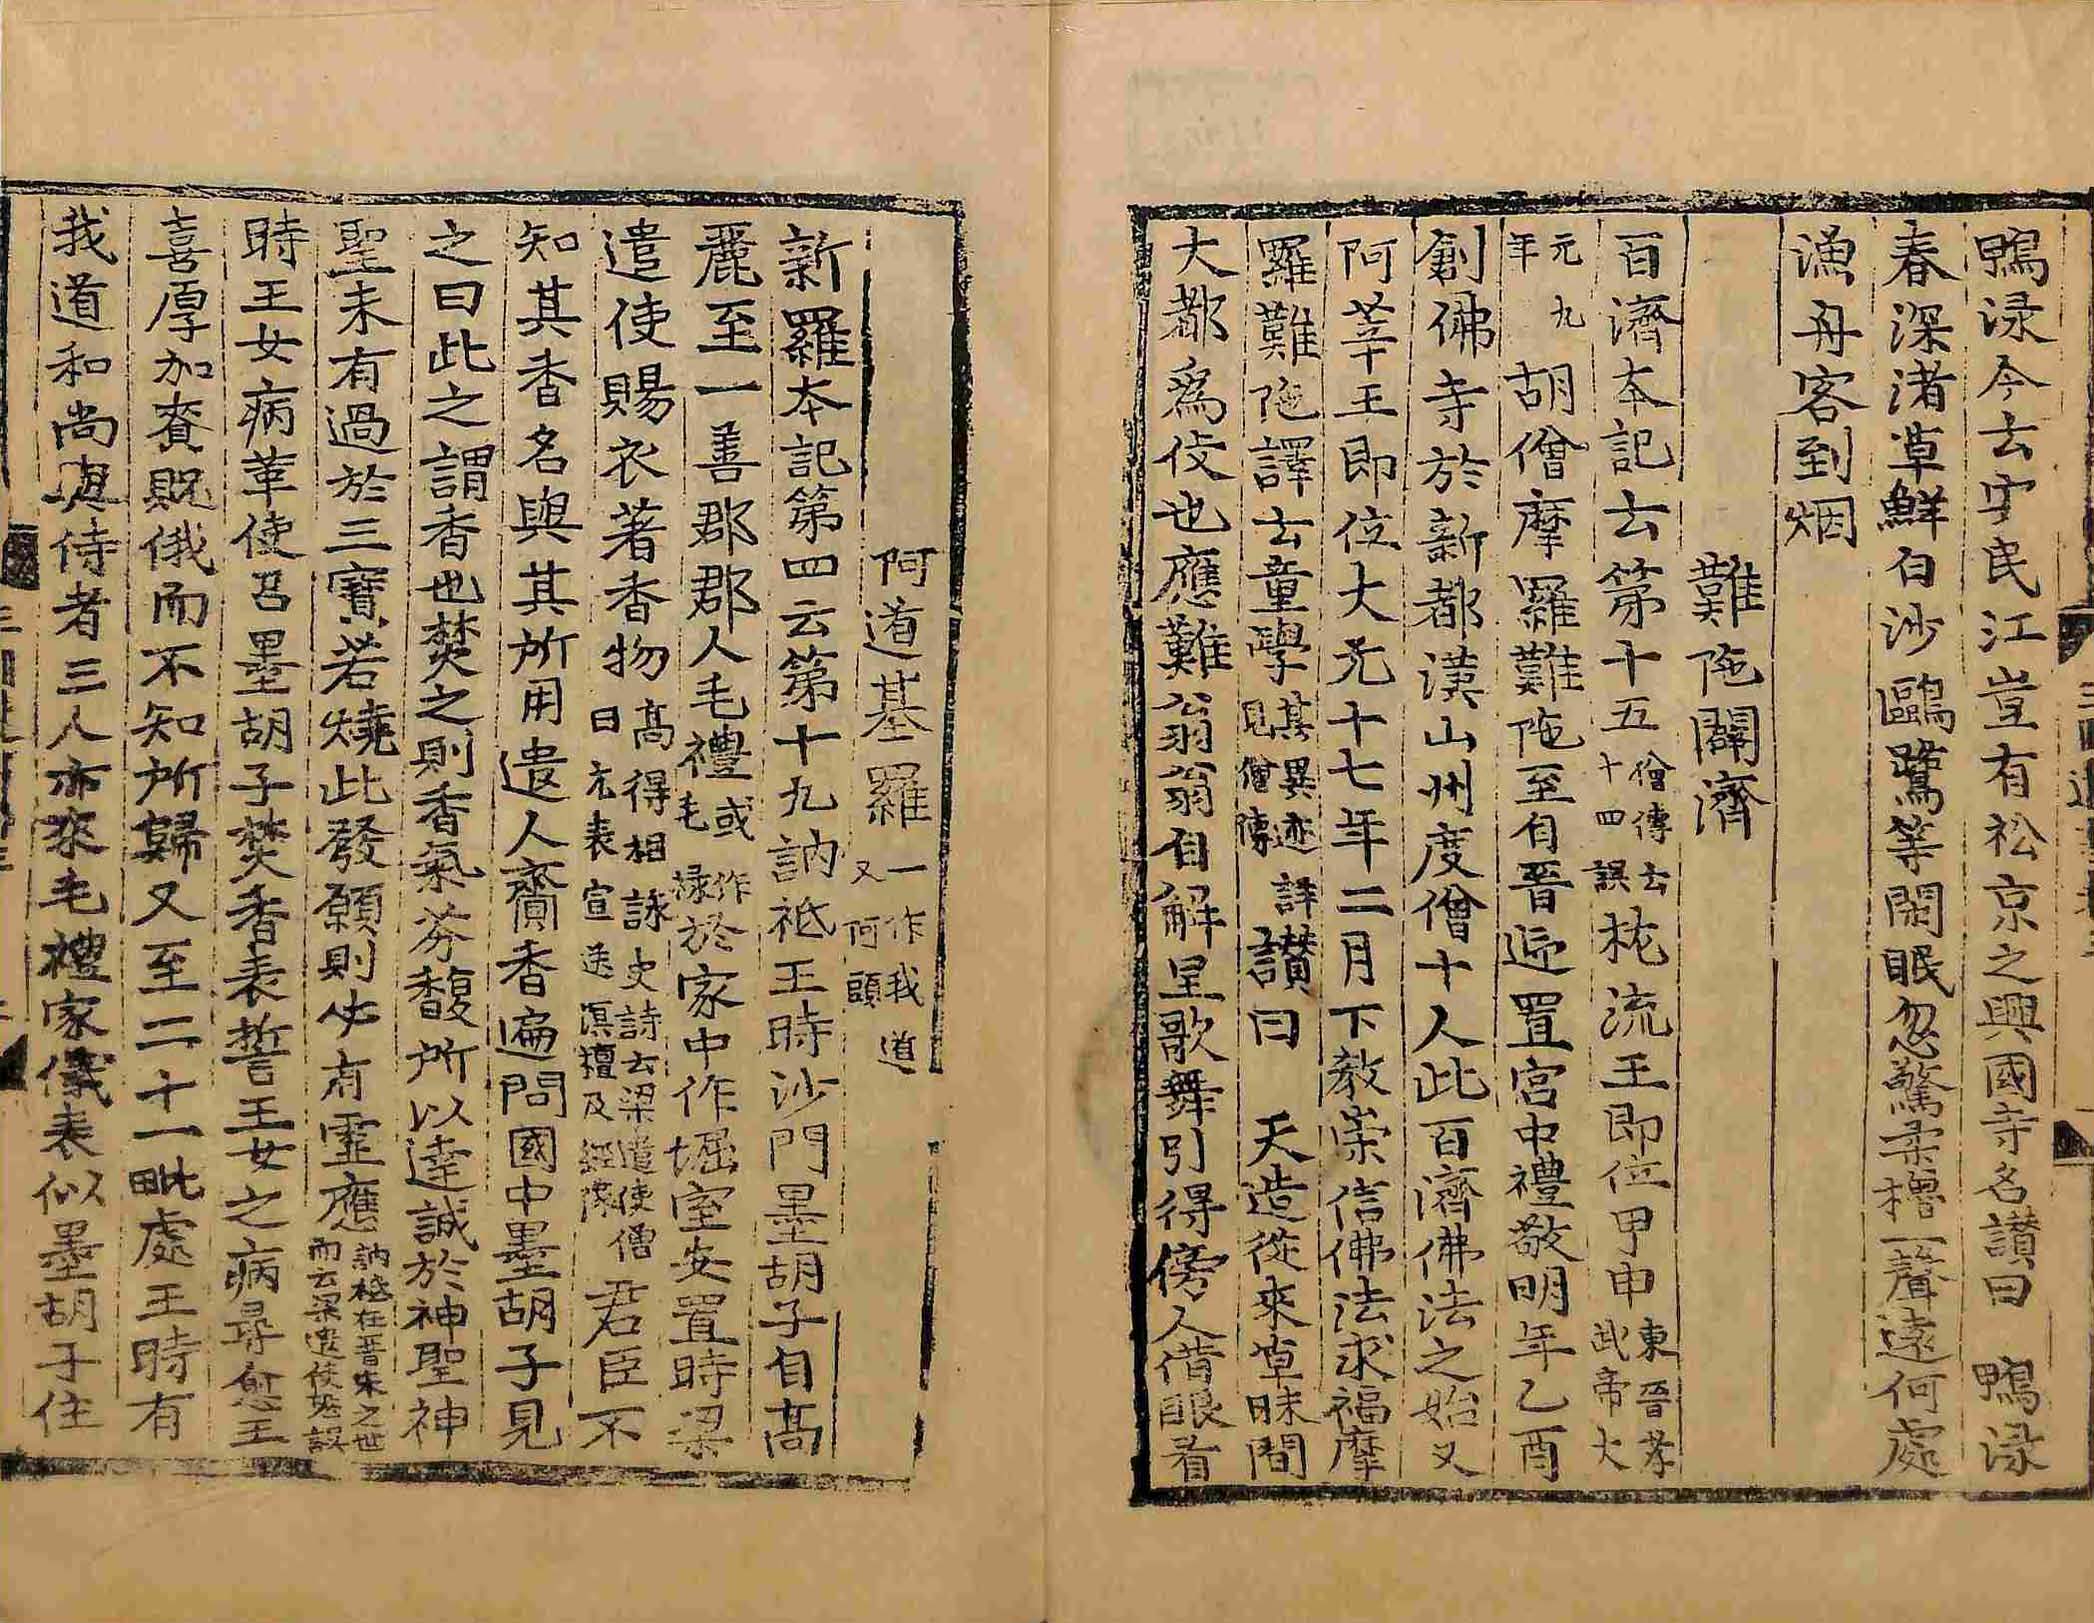 鴨渌今云安民江豈有松京之興國寺名讃曰　鴨渌
春深渚草鮮白沙鷗鷺等閑眠忽驚柔櫓一聲遠何處
漁舟客到烟
難陁闢濟
百濟本記云第十五僧傳云十四誤枕流王即位甲申東晉孝武帝大
元九年胡僧摩羅難陁至自晉迎置宮中禮敬明年乙酉
創佛寺於新都漢山州度僧十人此百濟佛法之始又
阿莘王即位大元十七年二月下教崇信佛法求福摩
羅難陁譯云童學其異迹詳見僧傳讃曰　天造從來草昧間
大都爲伎也應難翁翁自解呈歌舞引得傍人借眼看
阿道基羅一作我道又阿頭
新羅本記第四云第十九訥祗王時沙門墨胡子自高
麗至一善郡郡人毛禮或作毛祿於家中作堀室安置時梁
遣使賜衣著香物高得相詠史詩云梁遣使僧曰元表宣送溟檀及經像君臣不
知其香名與其所用遣人齎香遍問國中墨胡子見
之曰此之謂香也焚之則香氣芬馥所以達誠於神聖神
聖未有過於三寶若燒此發願則必有靈應訥祗在晋宋之世而云梁遣使恐誤
時王女病革使召墨胡子焚香表誓王女之病尋愈王
喜厚加賚貺俄而不知所歸又至二十一毗處王時有
我道和尚與侍者三人亦來毛禮家儀表似墨胡子住